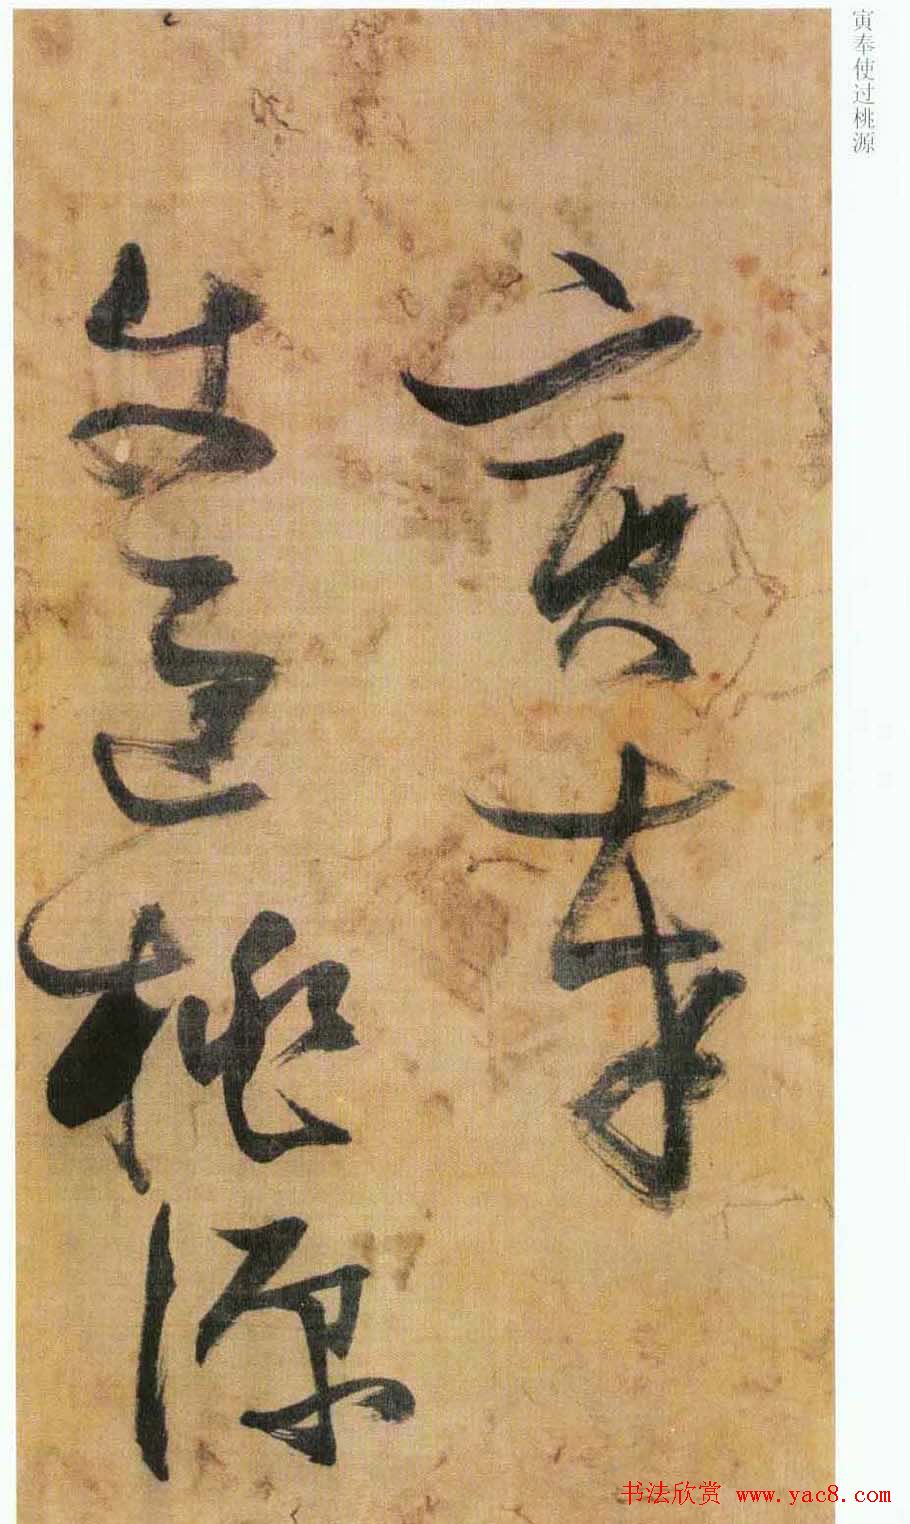 寅奉使过桃源
寅奉
使過桃源
书法欣赏 www.yac8.com